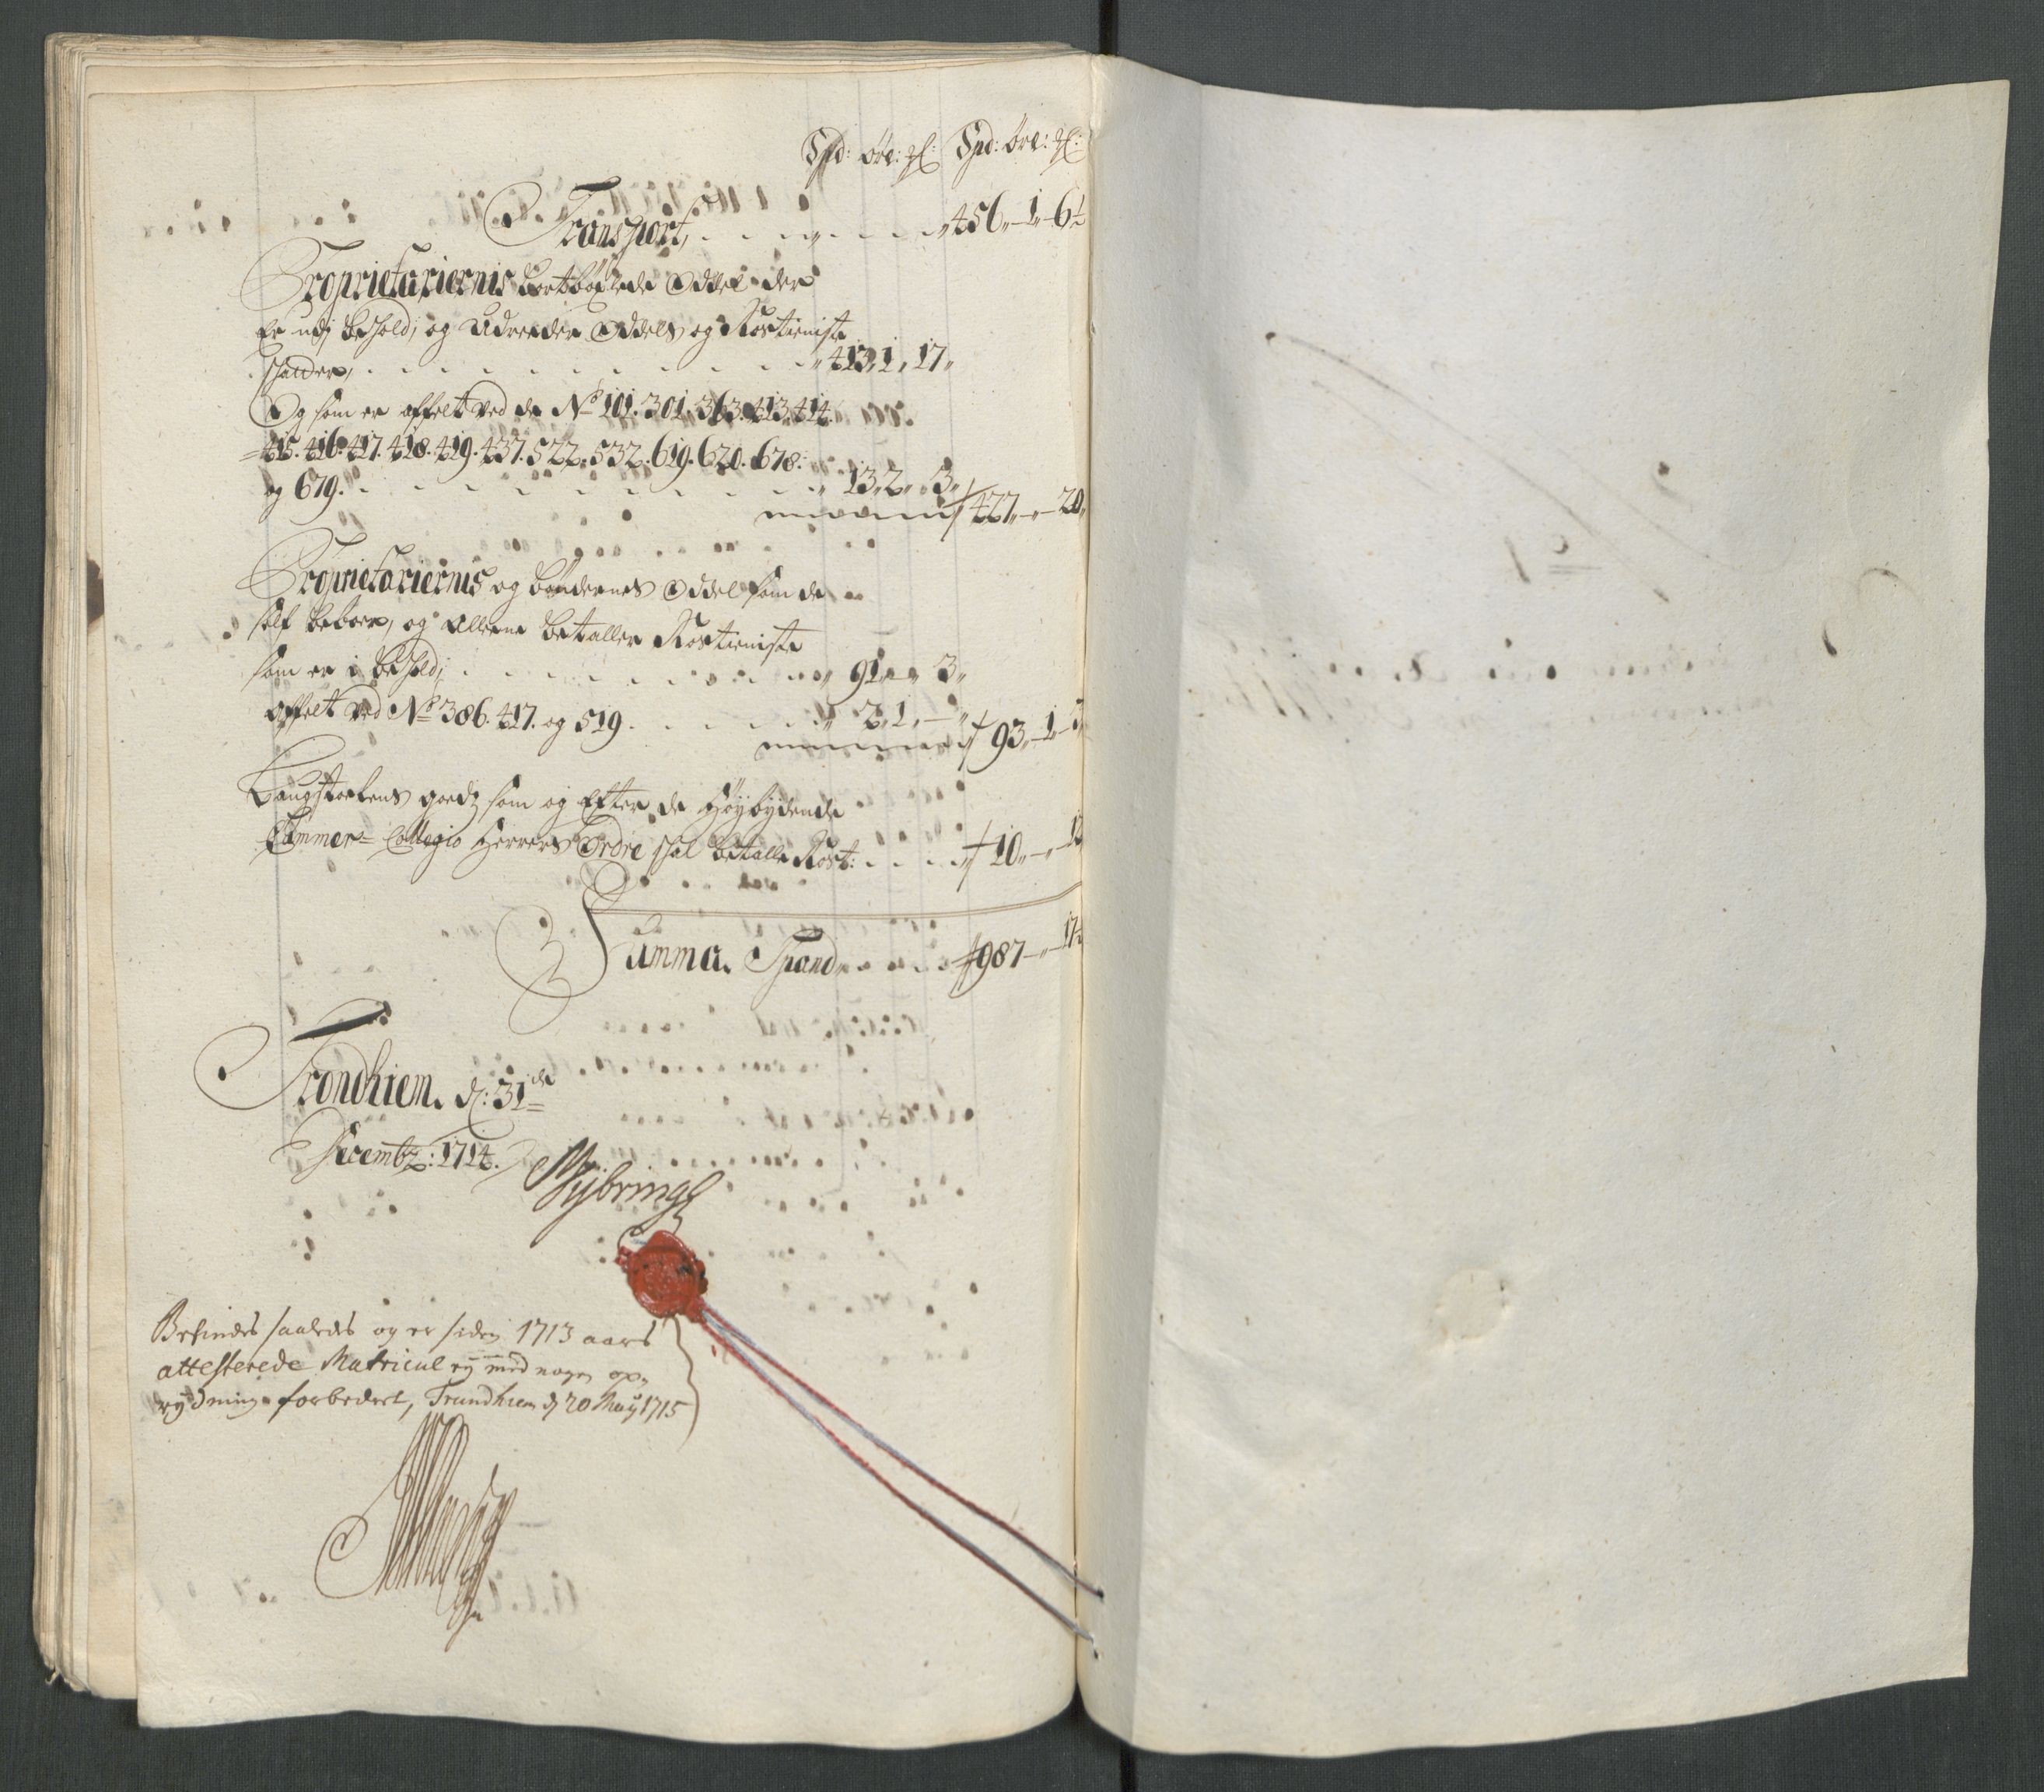 Spd: öre: Spd: öre:
Transport, 456 „ 1 „ 6½
Proprietariernis bortböxlede Oddel der
Er udj behold, og Udreeder Oddels og Rostieniste
schatder, 413 „ 1 „ 17 „
Og som er affelt ved de No 101. 301. 363. 413. 414.
415. 416. 417. 418. 419. 437. 522. 532. 619. 620. 678.
og 679. 13 „ 2 „ 3 „
427 „ — „ — 20 „
Proprietariernis og böndernes Oddel som de
self beboer, og allene betaller Rostieniste
som er i behold, 91 „ „ 3 „
affelt ved No 386. 417. og 519. 2 „ 1 „ —
93 „ — 1 — 3
Laugstoelens goedz som og Efter de Höybydende
Cammer-Collegio Herrers Ordre schal betalle Rost: 10 „ — „
Summa Spand 987 — „ — 17½
Trondhiem. d: 31de
Decembr: 1714.
Befindes saaledes og er siden 1713 aars
attesterede Matricul ej med nogen op-
rydning forbedret, Trundhiem d 20 Maij 1715